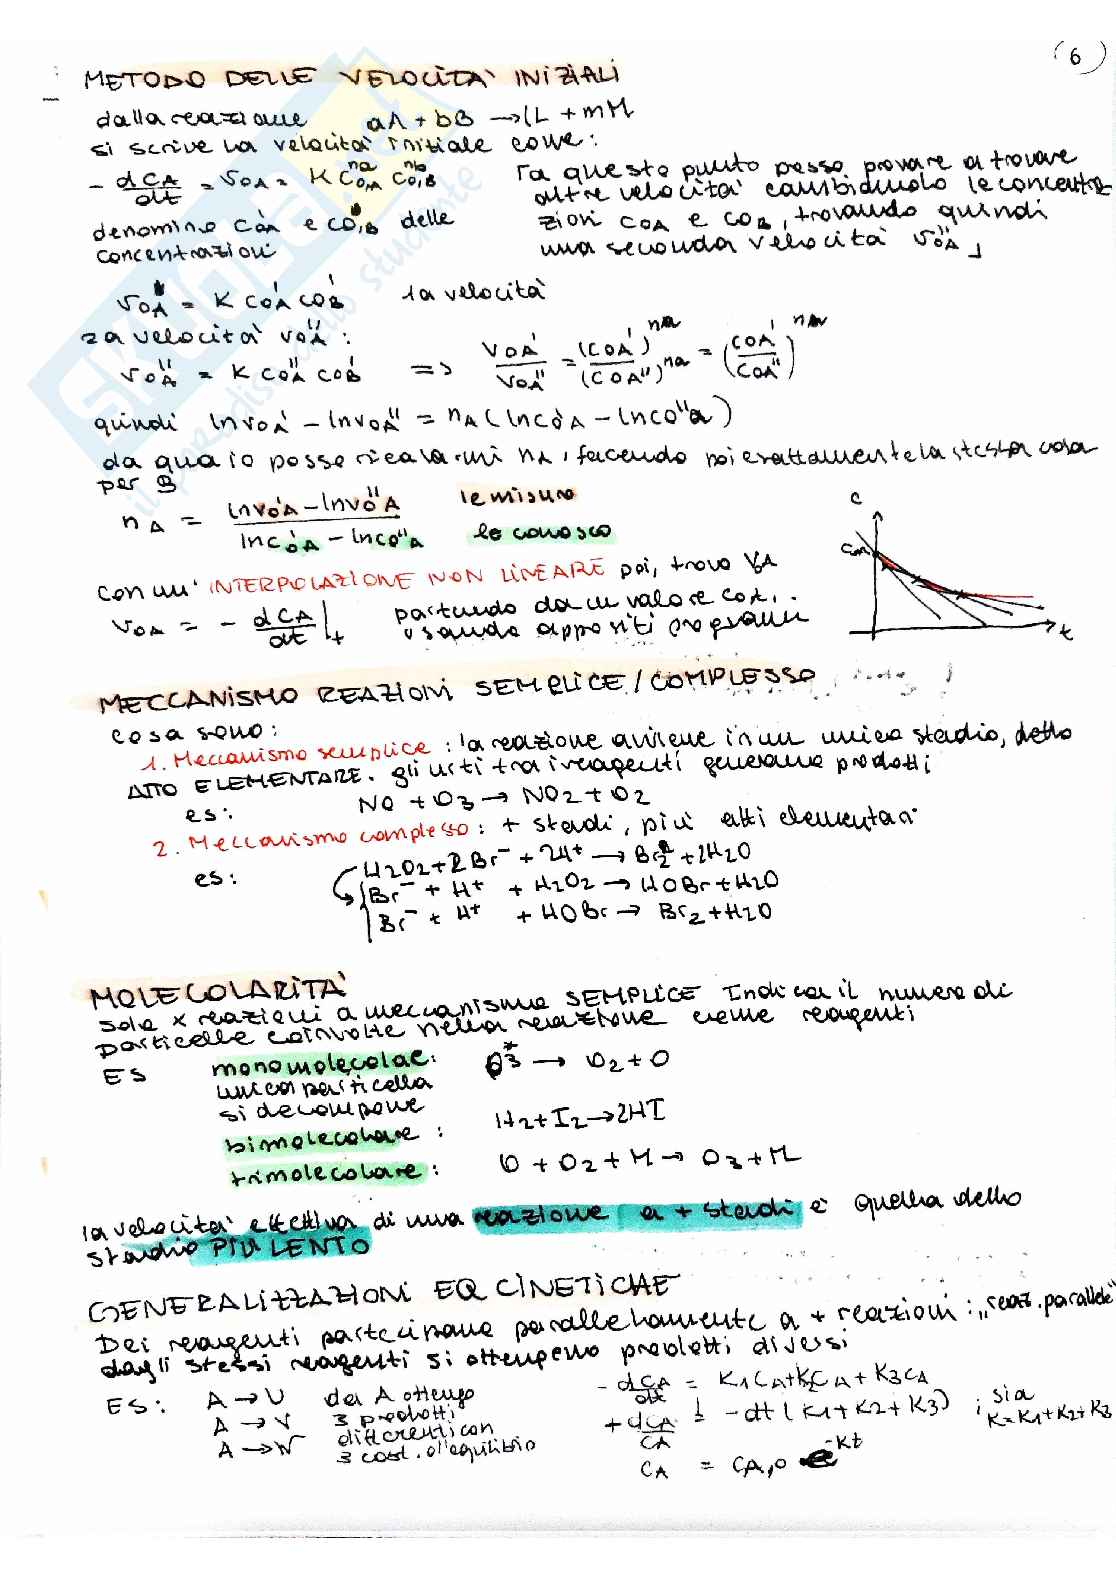 (6)
METODO DELLE VELOCITA' INIZIALI
dalla reazione aA + bB → lL + mM
si scrive la velocità iniziale come:
- dCA/dt = v0A = K C0,A^na C0,B^nb
denomino C0A' e C0,B' delle
concentrazioni
[a questo punto posso provare a trovare
altre velocità cambiandolo le concentra
zioni C0A e C0B, trovando quindi
una seconda velocità v0A'']
v0A' = K C0A' C0B' 1a velocità
2a velocità v0A'':
v0A'' = K C0A'' C0B' => v0A'/v0A'' = (C0A')^na/(C0A'')^na = (C0A'/C0A'')^na
quindi lnv0A' - lnv0A'' = nA (lnC0'A - lnC0''A)
da qua io posso ricavarmi nA, facendo poi esattamente la stessa cosa
per B
nA = (lnv0'A - lnv0''A)/(lnc0'A - lnc0''A) le misuro
le conosco
C
t
con un' INTERPOLAZIONE NON LINEARE poi, trovo v0A
v0A = - dCA/dt |t partendo da un valore C0A,
usando appositi programmi
MECCANISMO REAZIONI SEMPLICE/COMPLESSO
cosa sono:
1. Meccanismo semplice: la reazione avviene in un unico stadio, detto
ATTO ELEMENTARE. gli urti tra i reagenti generano prodotti
es: NO + O3 → NO2 + O2
2. Meccanismo complesso: + stadi, più atti elementari
es: H2O2 + 2Br⁻ + 2H⁺ → Br2 + 2H2O
Br⁻ + H⁺ + H2O2 → HOBr + H2O
Br⁻ + H⁺ + HOBr → Br2 + H2O
MOLECOLARITA'
solo x reazioni a meccanismo SEMPLICE Indica il numero di
particelle coinvolte nella reazione come reagenti
ES monomolecolae: O3* → O2 + O
unica particella
si decompone
bimolecolare: H2 + I2 → 2HI
trimolecolare: O + O2 + M → O3 + M
la velocità effettiva di una reazione a + stadi è quella dello
stadio PIU LENTO
GENERALIZZAZIONI EQ CINETICHE
Dei reagenti partecipano parallelamente a + reazioni: "reaz. parallele"
dagli stessi reagenti si ottengono prodotti diversi
ES: A → U da A ottengo
A → V 3 prodotti
A → W differenti con
3 cost. all'equilibrio
- dCA/dt = K1CA + K2CA + K3CA
+ dCA/CA = -dt (K1 + K2 + K3) ; sia
K=K1+K2+K3
CA = CA,0 e^-Kt
skuola.net
il paradiso dello studente